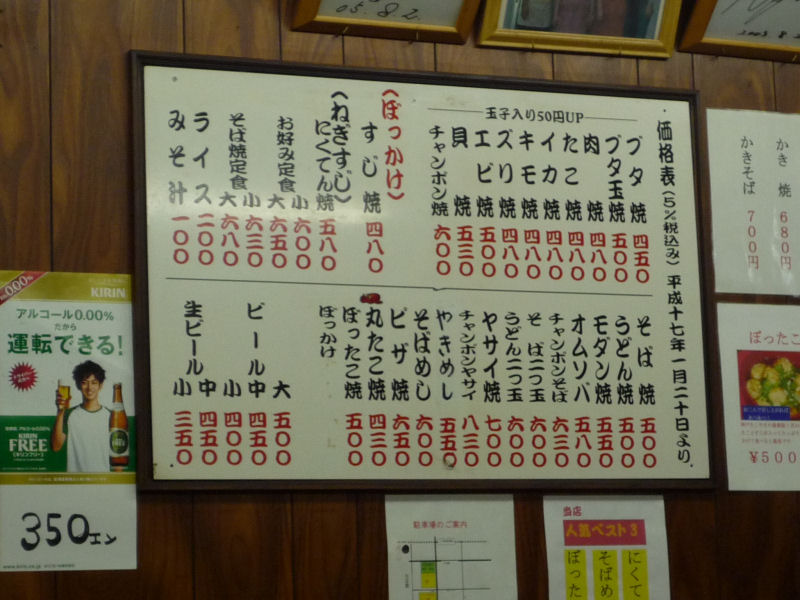 05.8.2.
2005.8.2
価格表(5%税込み)平成十七年一月二十日より
玉子入り50円UP
ブタ焼 四五〇
ブタ玉焼 五〇〇
肉焼 四八〇
たこ焼 四八〇
イカ焼 四八〇
キモ焼 四八〇
ズリ焼 四八〇
エビ焼 五〇〇
貝焼 五三〇
チャンポン焼 六〇〇
(ぼっかけ)
すじ焼 四八〇
(ねぎすじ)
にくてん焼 五八〇
お好み定食 小 六〇〇
大 六五〇
そば焼定食 小 六三〇
大 六八〇
ライス 二〇〇
みそ汁 一〇〇
そば焼 五〇〇
うどん焼 五五〇
モダン焼 五五〇
オムソバ 五八〇
チャンポンそば 六三〇
そば二つ玉 六〇〇
うどん二つ玉 六〇〇
ヤサイ焼 七〇〇
チャンポンヤサイ 八三〇
やきめし 五五〇
そばめし 六〇〇
ピザ焼 六五〇
丸たこ焼 四三〇
ぼったこ焼 五〇〇
ぼっかけ
ビール 大 五〇〇
中 四五〇
小 四〇〇
生ビール 中 四五〇
小 三五〇
かき焼 680円
かきそば 700円
ぼったこ
¥500
0.00%
KIRIN
アルコール0.00%
だから
運転できる!
KIRIN
FREE
[キリンフリー]
350エン
駐車場のご案内
当店
人気ベスト3
にくて
そばめ
ぼった